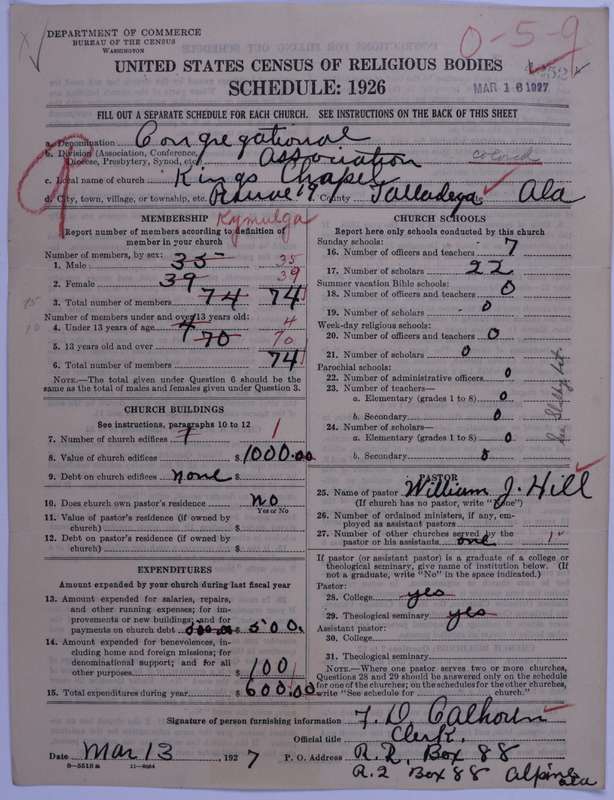 DEPARTMENT OF COMMERCE
BUREAU OF THE CENSUS
WASHINGTON
0-5-9
UNITED STATES CENSUS OF RELIGIOUS BODIES
SCHEDULE: 1926
MAR 16 1927
FILL OUT A SEPARATE SCHEDULE FOR EACH CHURCH. SEE INSTRUCTIONS ON THE BACK OF THIS SHEET
a. Denomination Congregational
b. Division (Association, Conference, Diocese, Presbytery, Synod, etc.) Association colored
c. Local name of church Kings Chapel
d. City, town, village, or township, etc. County Talladega Ala
Kymulga
MEMBERSHIP
Report number of members according to definition of
member in your church
Number of members, by sex:
1. Male 35 35
2. Female 39 39
3. Total number of members 74 74
Number of members under and over 13 years old:
4. Under 13 years of age 4 4
5. 13 years old and over 70 70
6. Total number of members 74
NOTE.—The total given under Question 6 should be the
same as the total of males and females given under Question 3.
CHURCH BUILDINGS
See instructions, paragraphs 10 to 12
7. Number of church edifices 1 1
8. Value of church edifices $ 1000.00
9. Debt on church edifices none $
10. Does church own pastor's residence no
Yes or No
11. Value of pastor's residence (if owned by
church) $
12. Debt on pastor's residence (if owned by
church) $
EXPENDITURES
Amount expended by your church during last fiscal year
13. Amount expended for salaries, repairs,
and other running expenses; for im-
provements or new buildings; and for
payments on church debt $ 500.
14. Amount expended for benevolences, in-
cluding home and foreign missions; for
denominational support; and for all
other purposes $ 100
15. Total expenditures during year $ 600.00
CHURCH SCHOOLS
Report here only schools conducted by this church
Sunday schools:
16. Number of officers and teachers 7
17. Number of scholars 22
Summer vacation Bible schools:
18. Number of officers and teachers 0
19. Number of scholars 0
Week-day religious schools:
20. Number of officers and teachers 0
21. Number of scholars 0
Parochial schools:
22. Number of administrative officers 0
23. Number of teachers—
a. Elementary (grades 1 to 8) 0
b. Secondary 0
24. Number of scholars—
a. Elementary (grades 1 to 8) 0
b. Secondary 0
PASTOR
25. Name of pastor William J. Hill
(If church has no pastor, write "None")
26. Number of ordained ministers, if any, em-
ployed as assistant pastors
27. Number of other churches served by the
pastor or his assistants one 1
If pastor (or assistant pastor) is a graduate of a college or
theological seminary, give name of institution below. (If
not a graduate, write "No" in the space indicated.)
Pastor:
28. College yes
29. Theological seminary yes
Assistant pastor:
30. College
31. Theological seminary
NOTE.—Where one pastor serves two or more churches,
Questions 28 and 29 should be answered only on the schedule
for one of the churches; on the schedules for the other churches,
write "See schedule for church."
Signature of person furnishing information F. D Calhoun
Official title Clerk.
Date Mar 13, 1927 P. O. Address R. R. Box 88
8-5518 a 11-9084
R. 2 Box 88 Alpine Ala